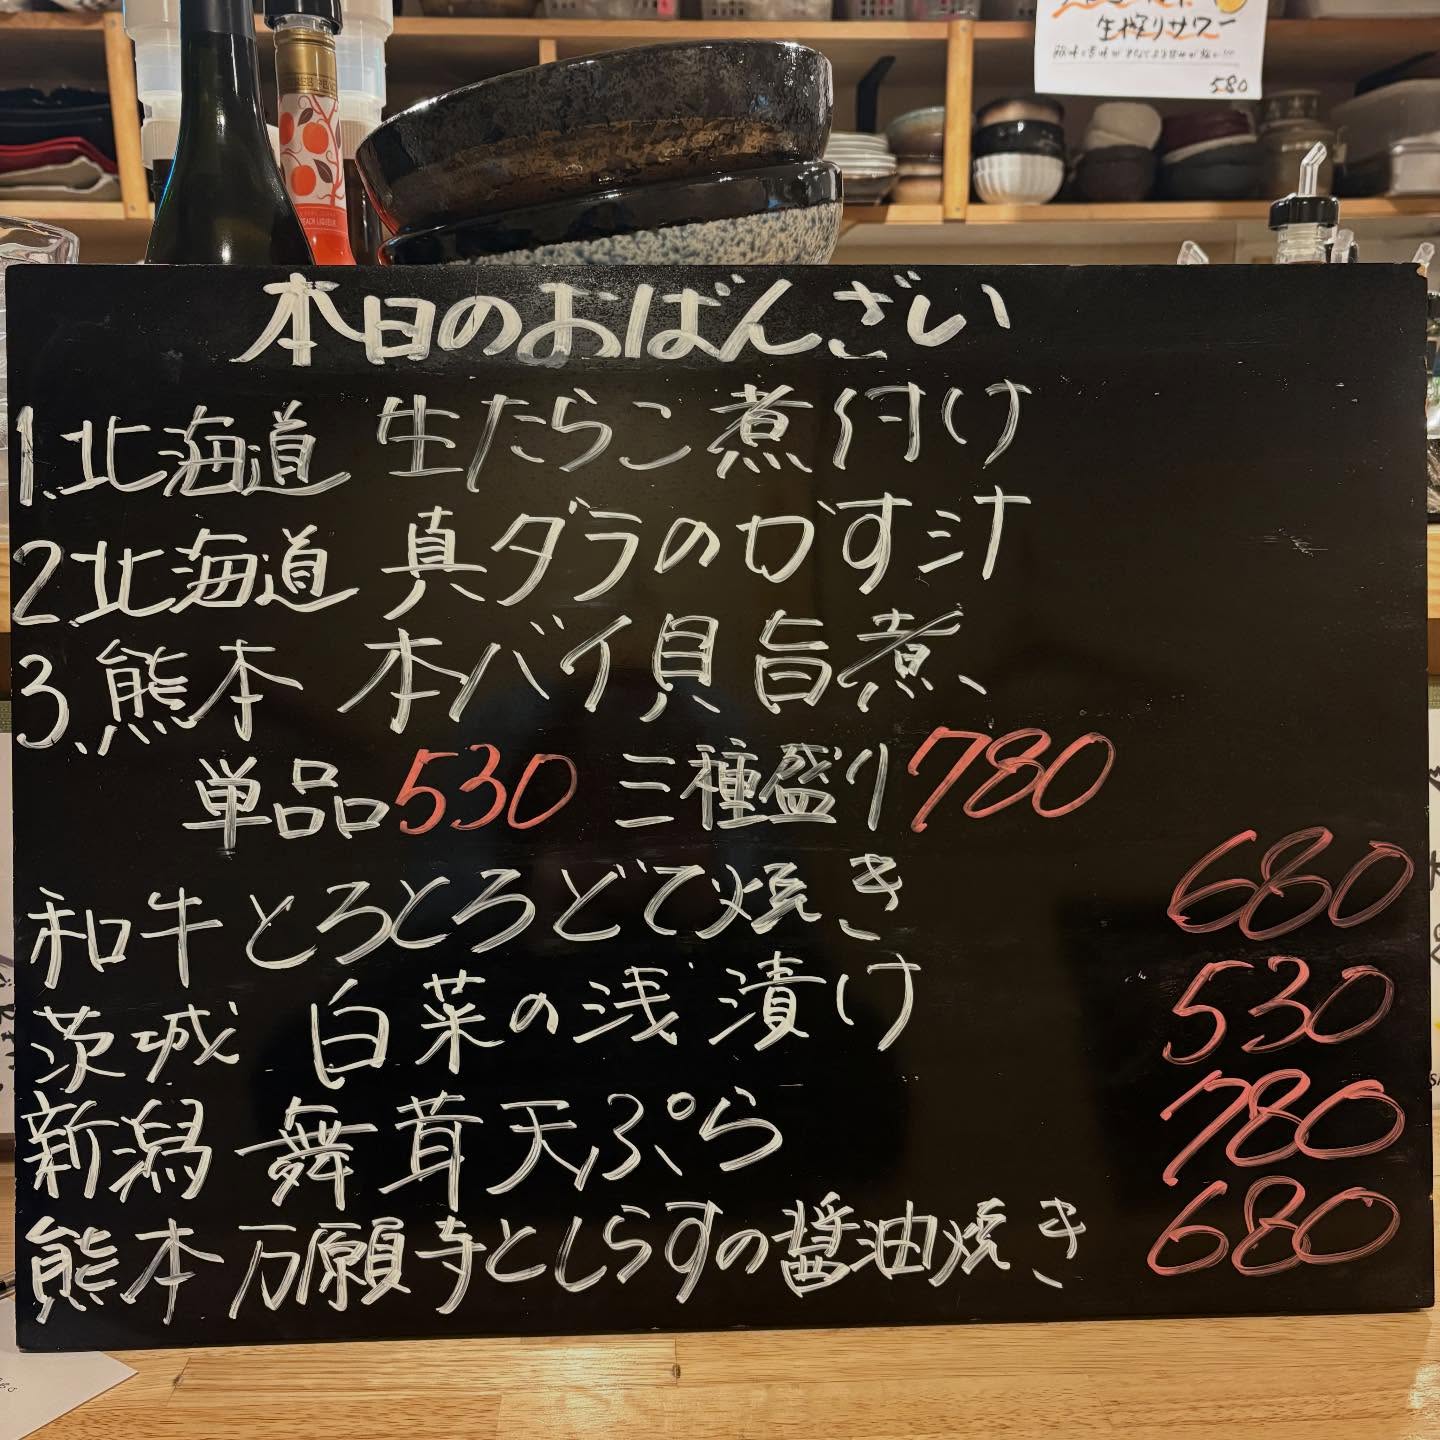 生搾りサワー
580
PEACH LIQUEUR
本日のおばんざい
1.北海道 生たらこ煮付け
2.北海道 真ダラのかす汁
3.熊本 本バイ貝旨煮
単品530 三種盛り780
和牛とろとろどて焼き 680
茨城 白菜の浅漬け 530
新潟 舞茸天ぷら 780
熊本 万願寺としらすの醤油焼き 680